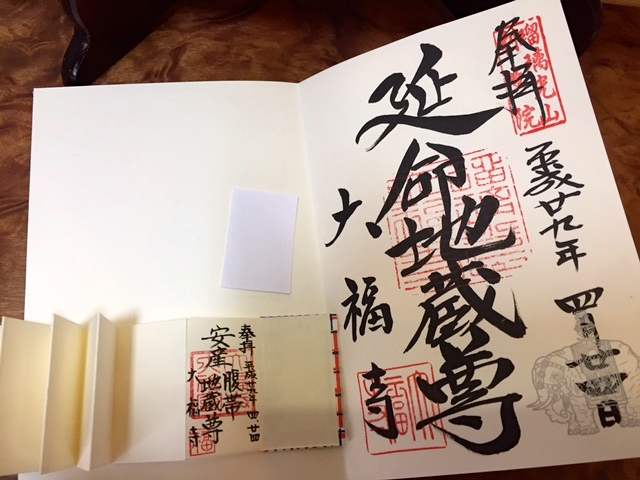 奉拝
瑠璃光山
院
平成廿九年
四月廿四日
延命地蔵尊
大福寺
奉拝
平成廿九年 四 廿四
腹帯
安産地蔵尊
大福寺